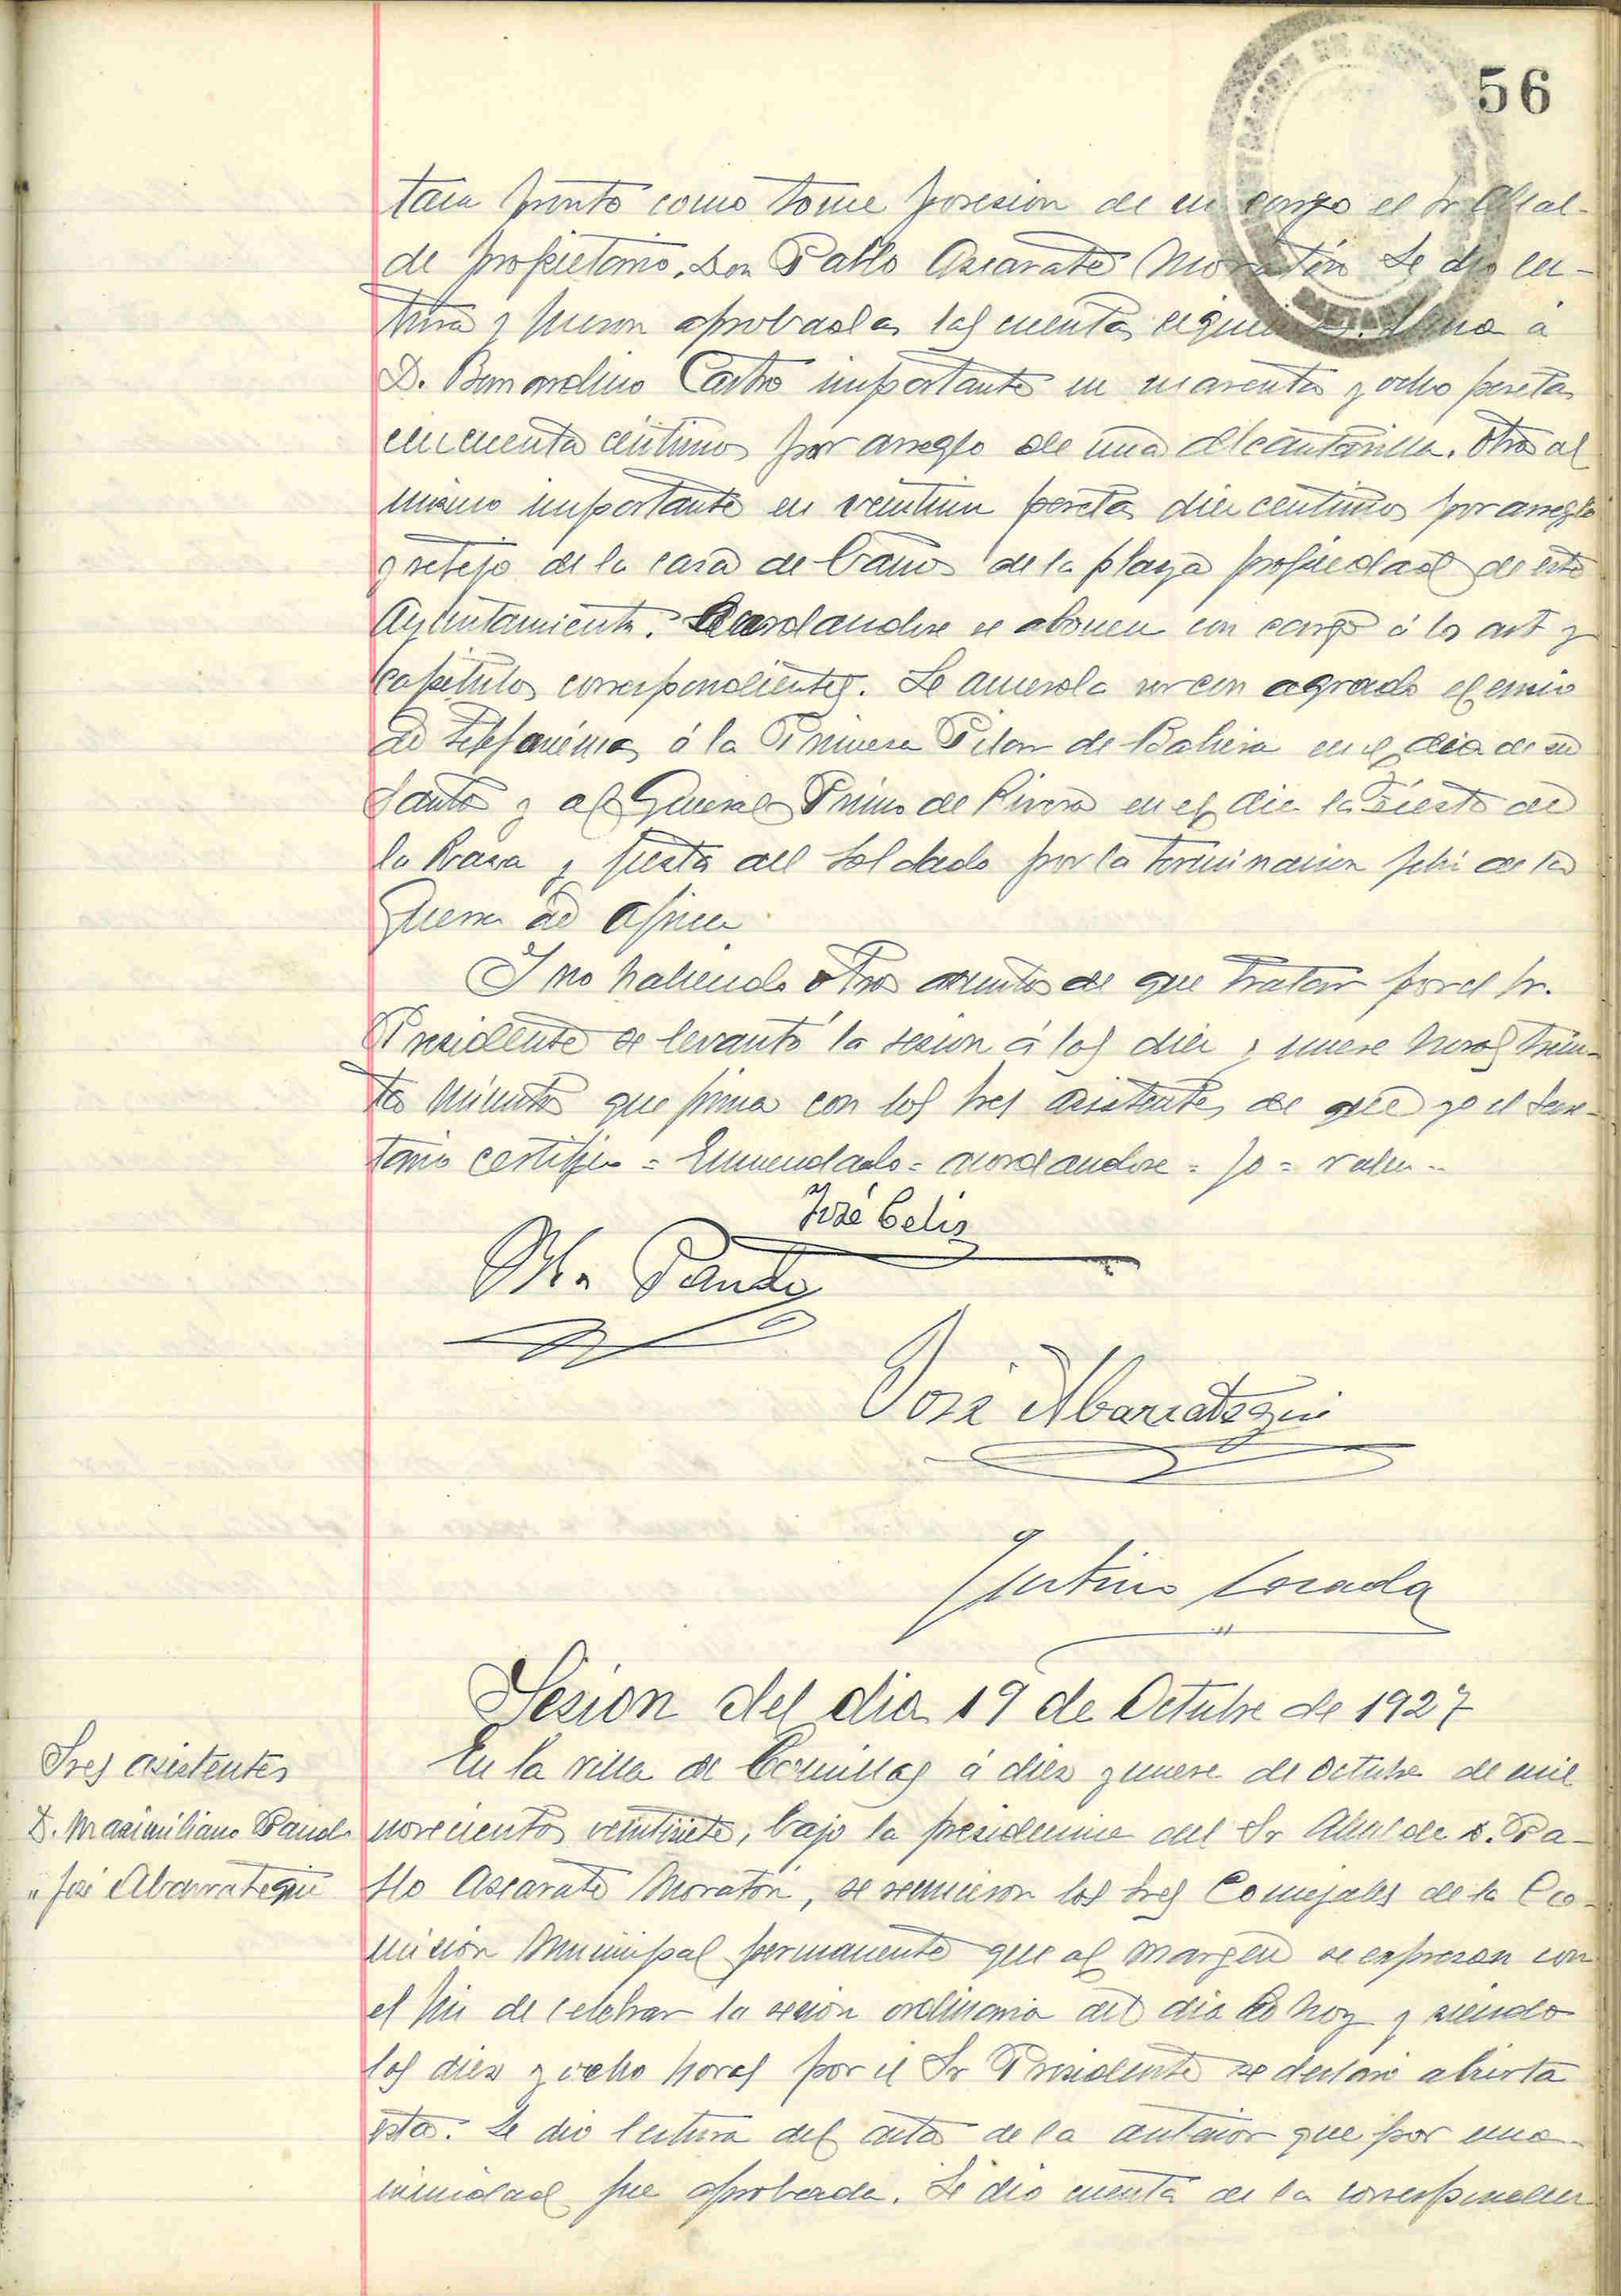 56
tan pronto como tome posesion de su cargo el Sr Alcal-
de propietario, Don Pablo Azcarate Moratón Se dio lec-
tura y fueron aprobadas las cuentas siguientes. Una á
D. Bernardino Castro importante en cuarenta y ocho pesetas
cincuenta centimos por arreglo de una alcantarilla. Otra al
mismo importante en veintiun pesetas diez centimos por arreglo
y retejo de la casa de baños de la playa propiedad de este
Ayuntamiento. acordandose se abonen con cargo á los art y
capitulos correspondientes. Se acuerda ver con agrado el envio
de telefonemas á la Princesa Pilar de Babiera en el dia de su
Santo y al General Primo de Rivera en el dia la Fiesta de
la Raza y fiesta del Soldado por la terminacion feliz de la
Guerra de Africa
Y no habiendo otros asuntos de que tratar por el Sr.
Presidente se levantó la sesion á las diez y nueve horas trein-
ta minutos que firma con los Sres asistentes, de que yo el Secre-
tario certifico = Enmendado = acordandose = yo = valen -
José Celis
M. Pando
José Abarrategui
Justino Losada
Sesion del dia 19 de Octubre de 1927
Sres asistentes
D. Maximiliano Pando
" José Abarrategui
En la villa de Comillas á diez y nueve de Octubre de mil
novecientos veintisiete, bajo la presidencia del Sr Alcalde D. Pa-
blo Azcarate Moratón, se reunieron los Sres Concejales de la Co-
mision Municipal permanente que al margen se expresan con
el fin de celebrar la sesion ordinaria del dia de hoy y siendo
las diez y ocho horas por el Sr Presidente se declaró abierta
esta. Se dio lectura del acta de la anterior que por una-
nimidad fue aprobada. Se dio cuenta de la corresponden